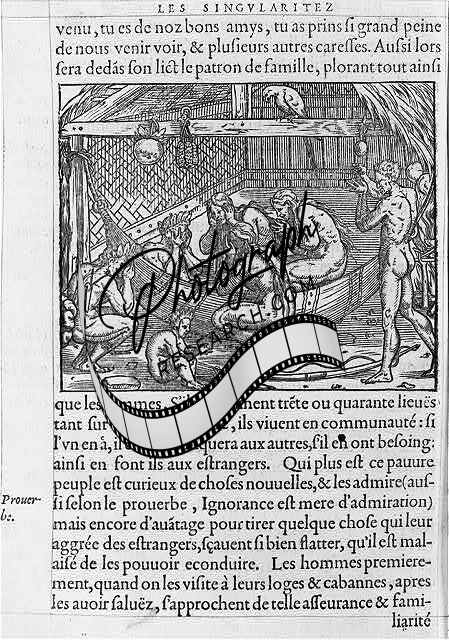 LES SINGVLARITEZ
venu, tu es de noz bons amys, tu as prins si grand peine
de nous venir voir, & plusieurs autres caresses. Aussi lors
sera dedãs son lict le patron de famille, plorant tout ainsi
Photograph
RESEARCH.COM
que les trẽte ou quarante lieuës
tant sur , ils viuent en communauté: si
l'vn en à, il aux autres, s'il en ont besoing:
ainsi en font ils aux estrangers. Qui plus est ce pauure
peuple est curieux de choses nouuelles, & les admire (aus-
Prouer-
be.
si selon le prouerbe, Ignorance est mere d'admiration)
mais encore d'auãtage pour tirer quelque chose qui leur
aggrée des estrangers, sçauent si bien flatter, qu'il est mal-
aisé de les pouuoir econduire. Les hommes premiere-
ment, quand on les visite à leurs loges & cabannes, apres
les auoir saluëz, s'approchent de telle asseurance & fami-
liarité